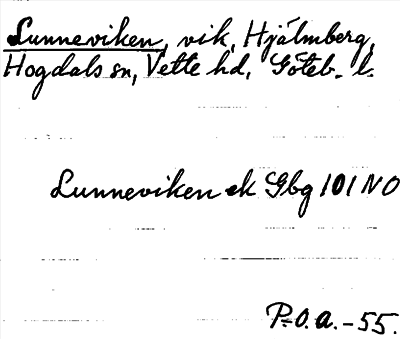 Lunneviken, vik, Hjälmberg,
Hogdals sn, Vette hd, Göteb. l.
Lunneviken ek Gbg 101 NO
P.O.A. - 55.